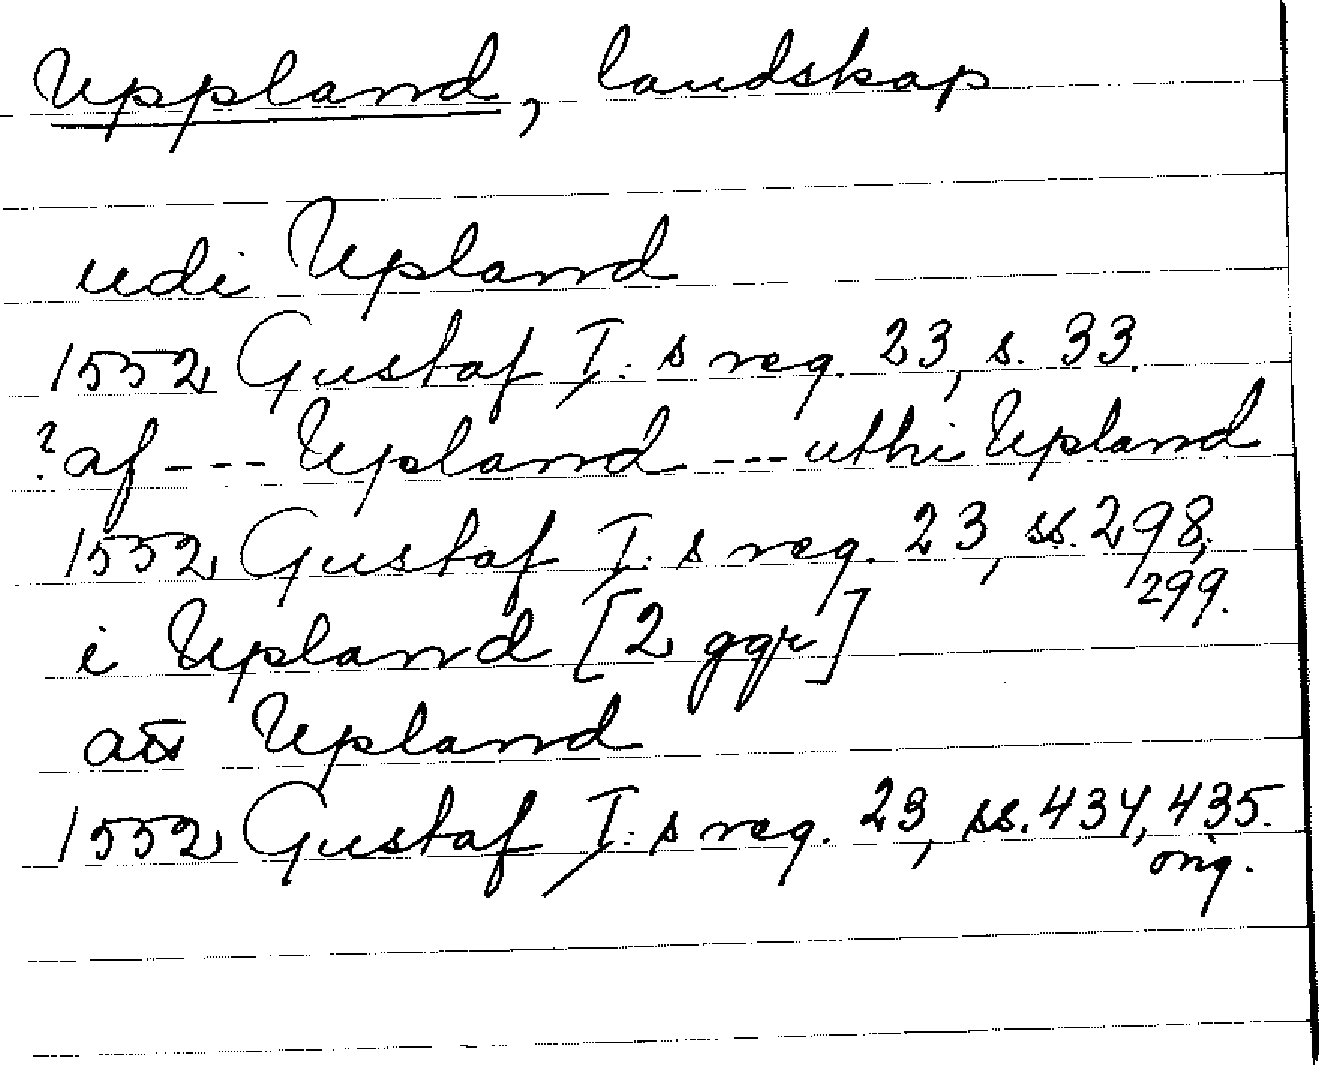 Uppland, landskap
udi Upland
1552 Gustaf I:s reg. 23, s. 33.
? af --- Upland --- uthi Upland
1552 Gustaf I:s reg. 23, ss. 298,
299.
i Upland [2 ggr]
Upland
1552 Gustaf I:s reg. 23, ss. 434, 435.
orig.